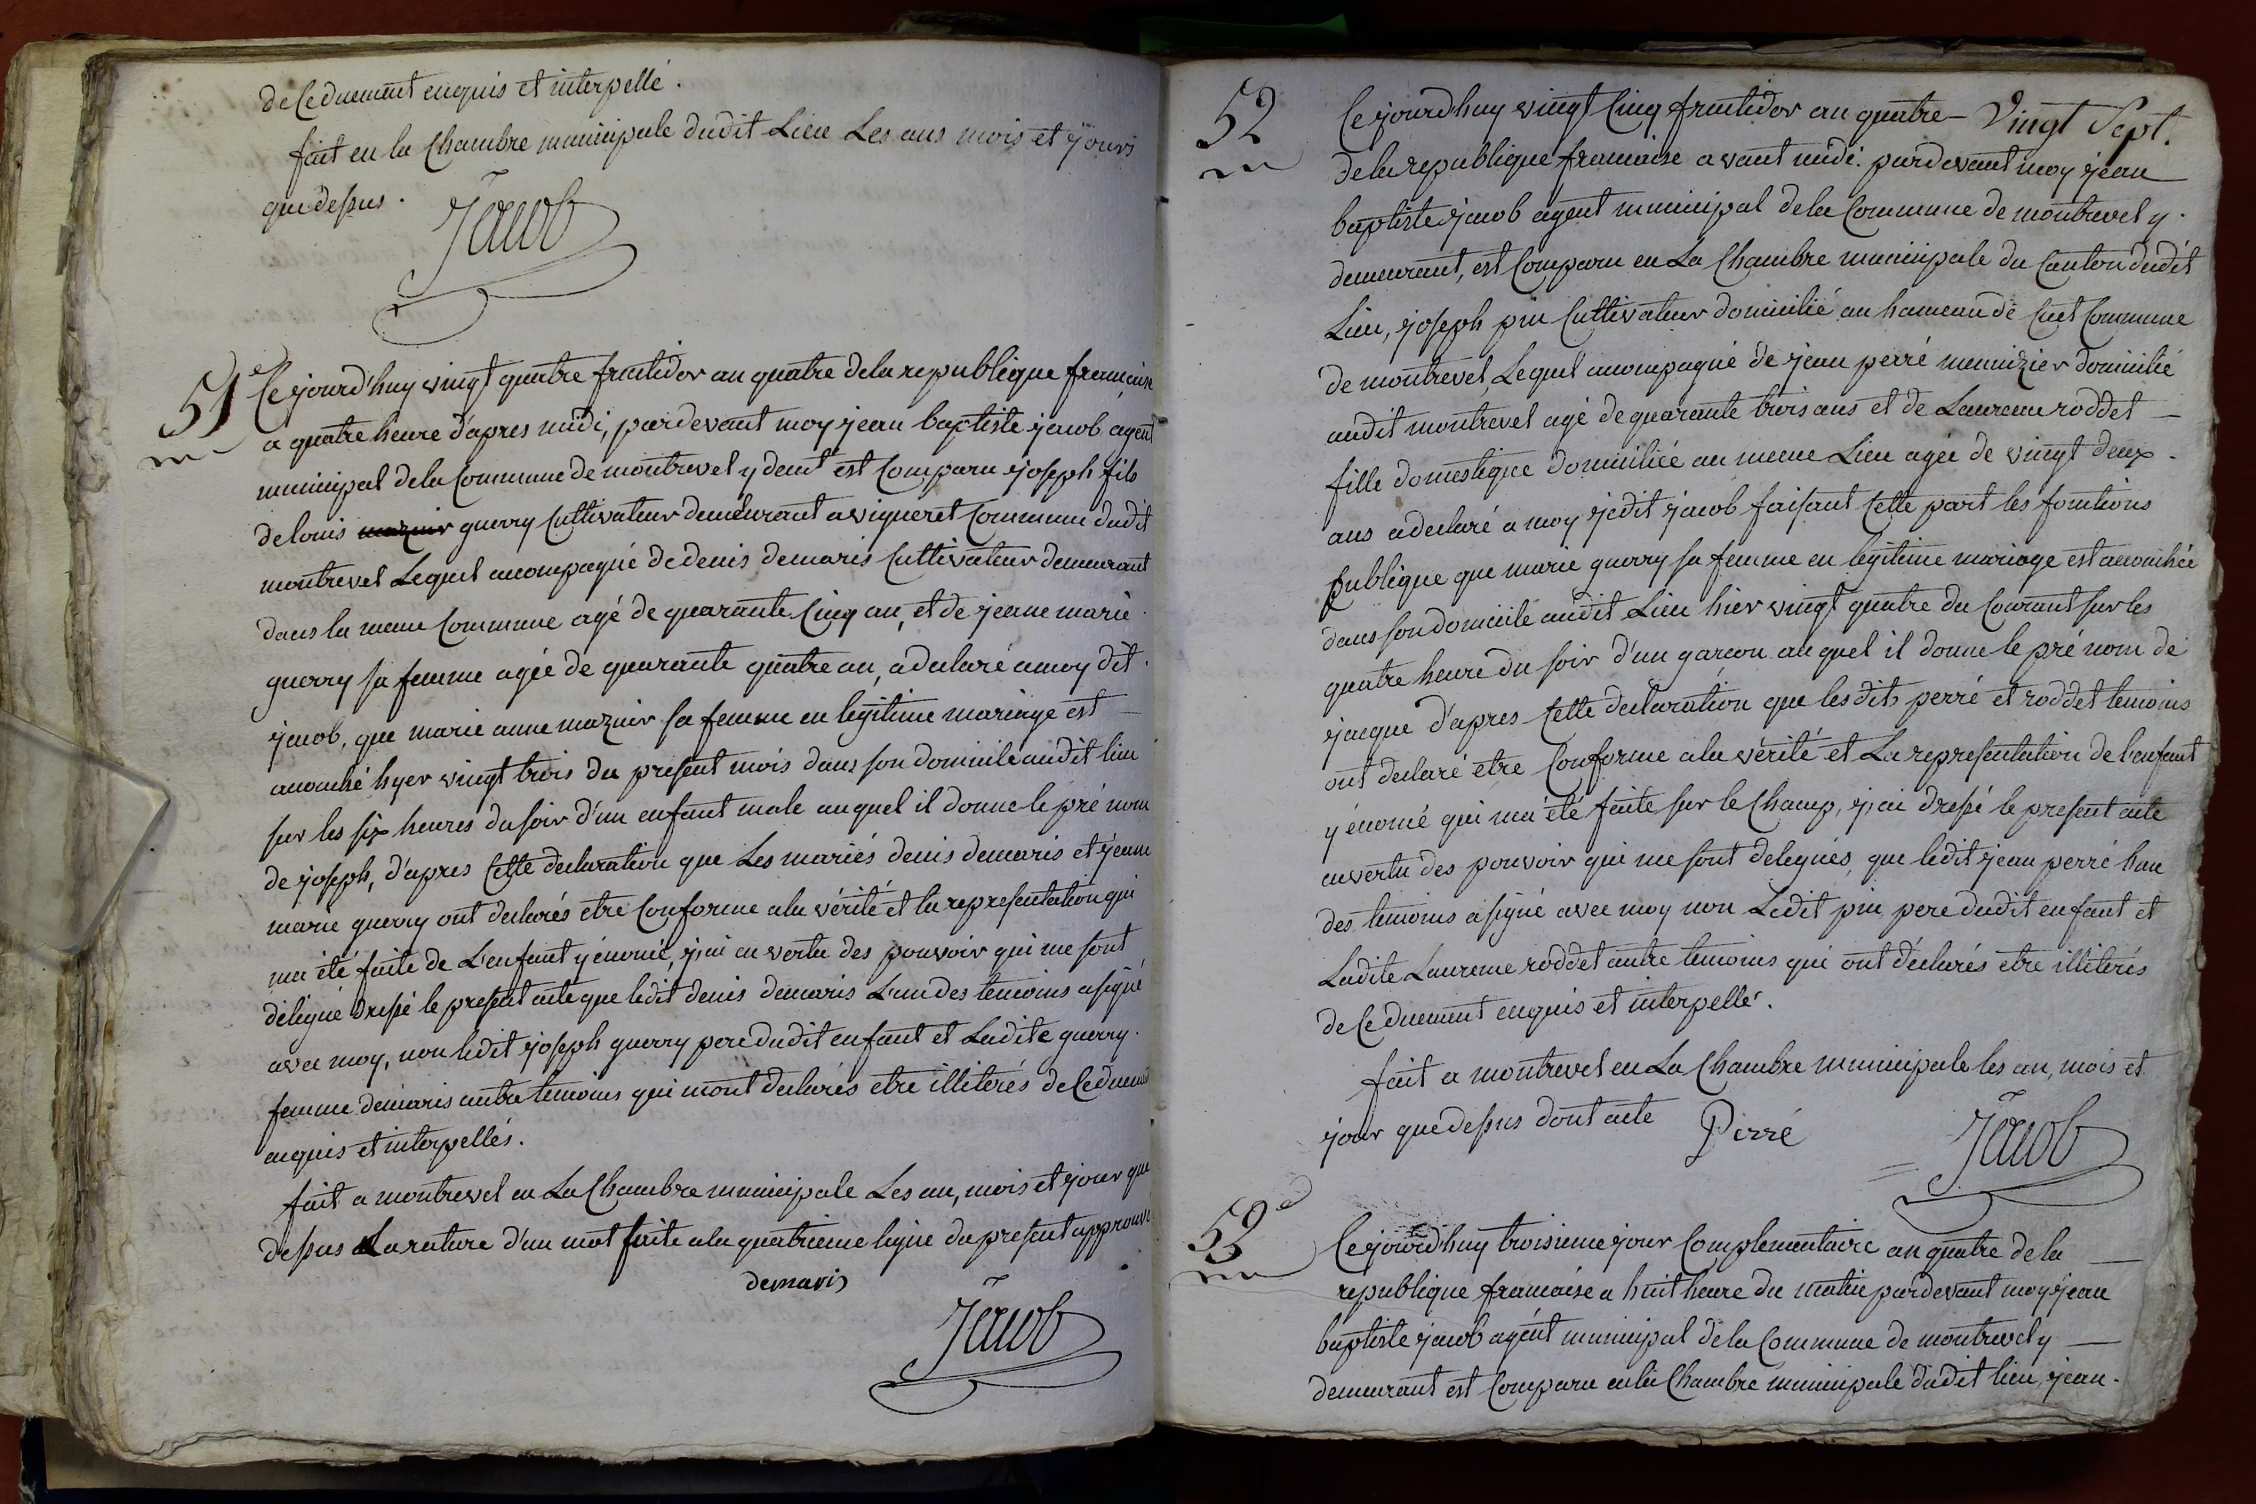 de Ce duement enquis et interpellé.
fait en la Chambre municipale dudit Lieu Les ans mois et jours
que dessus.
Jacob
51e
Cejourd'huy vingt quatre fructidor an quatre dela republique francaise
a quatre heure d'apres midi, pardevant moy jean baptiste jacob agent
municipal dela Commune de montrevel y demt est Comparu joseph fils
de louis maznir guerry Cultivateur demeurant a vigueret Commune dudit
montrevel Lequel acompagné de denis demaris Cultivateur demeurant
dans la meme Commune agé de quarante Cinq an, et de jeane marie
guerry sa femme agée de quarante quatre an, a declaré a moy dit
jacob, que marie anne maznir sa femme en legitime mariage est
acouché hyer vingt trois du present mois dans son domicile audit lieu
sur les six heures du soir d'un enfant male auquel il donne le pré nom
de joseph, d'apres Cette declaration que Les mariés denis demaris et jeane
marie guerry ont declarés etre Conforme ala vérité et la representation qui
ma été faite de L'enfant y énoncé, j'ai en vertu des pouvoir qui me sont
délégué dressé le present acte que ledit denis demaris L'un des temoins a signé
avec moy, non ledit joseph guerry pere dudit enfant et Ladite guerry
femme demaris autre temoins qui mont declarés etre illiterés de Ce duement
enquis et interpellés.
fait a montrevel en La Chambre municipale Les an, mois et jour que
dessus La rature d'un mot faite ala quatrieme ligne du present approuvé
demaris
Jacob
Vingt Sept.
52
Cejourdhuy vingt Cinq fructidor an quatre
dela republique francaise avant midi. pardevant moy jean
baptiste jacob agent municipal dela Commune de montrevel y
demeurant, est Comparu en La Chambre municipale du Canton dudit
Lieu, joseph pin Cultivateur domicilié au hameau de Cuet Commune
de montrevel, Lequel acompagné de jean perré menuizier domicilié
audit montrevel agé de quarante trois ans et de Laurence roddet
fille domestique domiciliée au meme Lieu agée de vingt deux
ans a declaré a moy jedit jacob faisant Cette part les fonctions
publique que marie guerry sa femme en legitime mariage est acouchée
dans son domicile audit Lieu hier vingt quatre du Courant sur les
quatre heure du soir d'un garcon auquel il donne le pré nom de
jacque d'apres Cette declaration que lesdits perré et roddet temoins
ont declaré etre Conforme ala vérité et La representation de l'enfant
y énoncé qui ma été faite sur le Champ, j'ai dressé le present acte
en vertu des pouvoir qui me sont delegués, que ledit jean perré l'un
des temoins a signé avec moy non Ledit pin pere dudit enfant et
Ladite Laurence roddet autre temoins qui ont déclarés etre illiterés
de Ce duement enquis et interpellé.
fait a montrevel en La Chambre municipale les an, mois et
jour que dessus dont acte
Perré
Jacob
53e
Cejourd'huy troisieme jour Complementaire an quatre de la
republique francaise a huit heure du matin pardevant moy jean
baptiste jacob agent municipal dela Commune de montrevel y
demeurant est Comparu en la Chambre municipale dudit lieu, jean